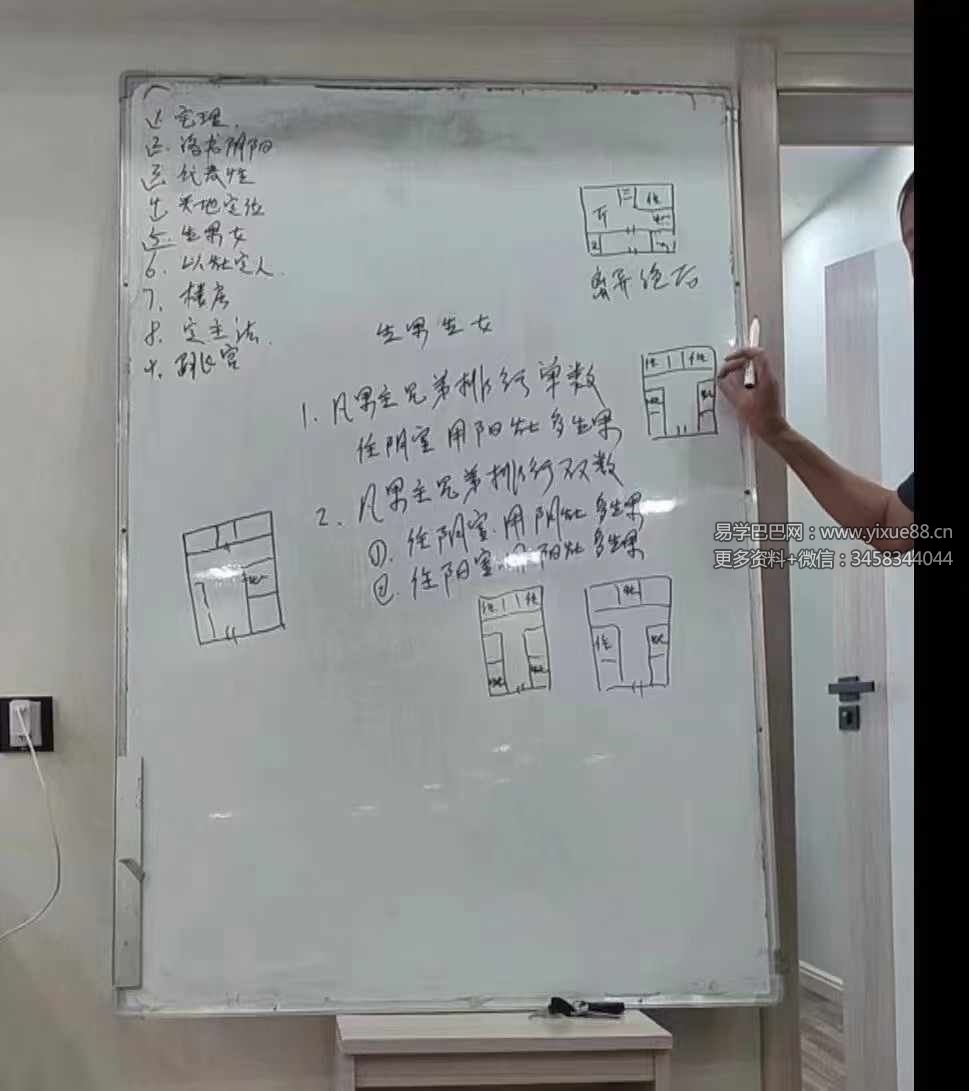 1. 宅理.
2. 洛书阴阳
3. 代表性
4. 天地定位
5. 生男女
6. 以灶定人.
7. 楼房
8. 定主法.
9. 跳宫
住
灶
离异绝后
生男生女
住 住
灶 灶
1. 凡男主兄弟排行单数
住阴室用阳灶多生男
2. 凡男主兄弟排行双数
①. 住阴室.用阴灶多生男
②. 住阳室.用阳灶多生男
灶
住 住
灶 灶
灶
住 灶
易学巴巴网：www.yixue88.cn
更多资料+微信：3458344044